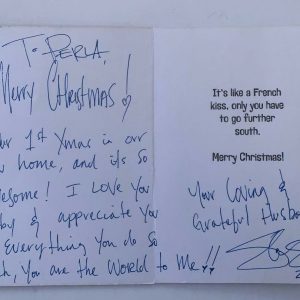 To PERLA,
Merry Christmas!
our 1st Xmas in our
home, and it's so
Awesome! I Love You
& appreciate you
Everything You do so
You are the World to Me!!
It's like a French
kiss, only you have
to go further
south.
Merry Christmas!
Your Loving &
Grateful Husband